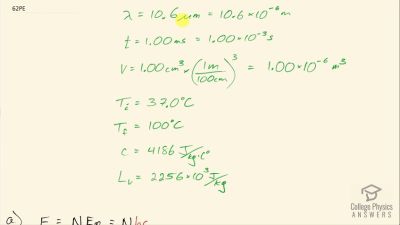 62PE
λ = 10.6 μm = 10.6 × 10⁻⁶ m
t = 1.00 ms = 1.00 × 10⁻³ s
V = 1.00 cm³ × (1m/100cm)³ = 1.00 × 10⁻⁶ m³
Tᵢ = 37.0°C
T_f = 100°C
c = 4186 J/kg·C°
L_v = 2256 × 10³ J/kg
a) E = N E = N hc
College Physics
ANSWERS